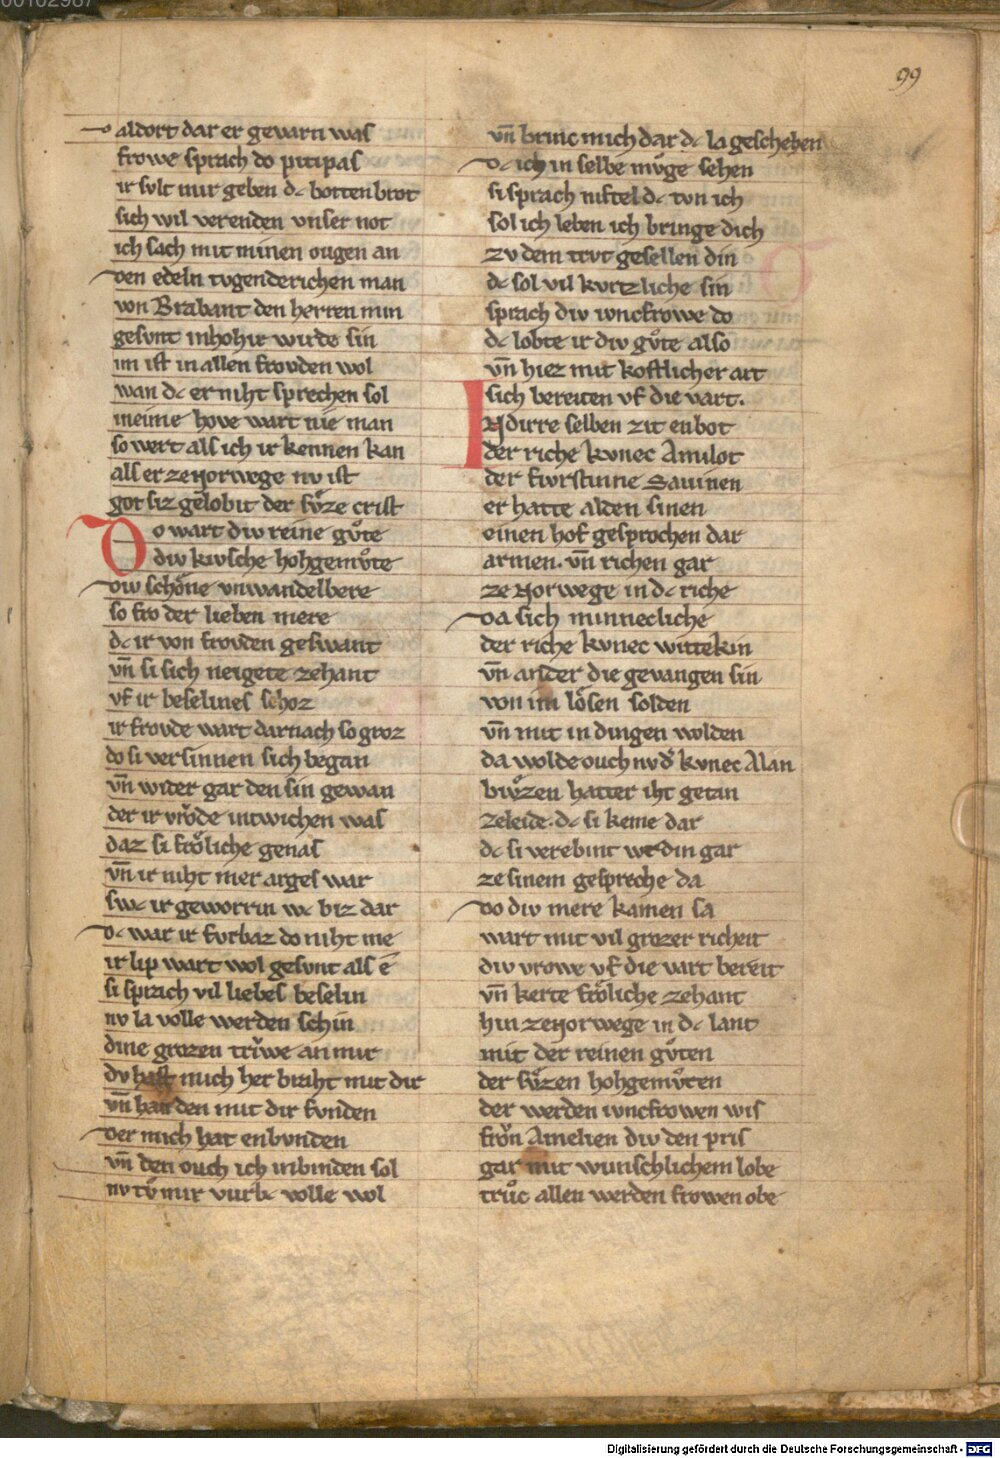 99
aldort dar er gevarn was
frowe sprach do pitipas
ir svlt mir geben dc bottenbrot
sich wil verenden vnser not
ich sach mit minen ougen an
den edeln tvgenderichen man
von Brabant den herren min
gesvnt inhohir wirde sin
im ist in allen frovden wol
wan dc er niht sprechen sol
meinie hove wart nie man
so wert als ich ir kennen kan
als er zenorwege nv ist
got siz gelobit der sv̊ze crist
Do wart div reine gv̊te
div kivsche hohgemv̊te
div schöne vnwandelbere
so fro der lieben mere
dc ir von frovden geswant
vn̄ si sich neigete zehant
vf ir beselines schoz
ir frovde wart darnach so groz
do si versinnen sich began
vn̄ wider gar den sin gewan
der ir vrôde intwichen was
daz si frôliche genas
vn̄ ir niht mer arges war
swc ir geworrin wc biz dar
dc war ir fvrbaz do niht me
ir lip wart wol gesvnt als ē
si sprach vil liebes beselin
nv la volle werden schin
dine grozen trv̊we an mir
dv hast mich her braht mit dir
vn̄ han den mit dir fvnden
der mich hat enbvnden
vn̄ den ouch ich inbinden sol
nv tv̊ mir vurbc volle wol
vn̄ brinc mich dar dc la geschehen
dc ich in selbe mv̊ge sehen
si sprach niftel dc tvn ich
sol ich leben ich bringe dich
zv dem trvt gesellen din
dc sol vil kvrtzliche sin
sprach div ivncfrowe do
dc lobte ir div gv̊te also
vn̄ hiez mit kostlicher art
sich bereiten vf die vart.
IN dirre selben zit enbot
der riche kvnec Amilot
der fivrstinne Savinen
er hatte alden sinen
einen hof gesprochen dar
armen. vn̄ richen gar
ze Norwege in dc riche
da sich minnecliche
der riche kvnec wittekin
vn̄ ander die gevangen sin
von im lôsen solden
vn̄ mit in dingen wolden
da wolde ouch nvd͛ kvnec Alan
bv̊zen hatter iht getan
zeleide. dc si keme dar
dc si verebint werdin gar
ze sinem gespreche da
do div mere kamen sa
wart mit vil grozer richeit
div vrowe vf die vart bereit
vn̄ kerte frôliche zehant
hin zenorwege in dc lant
mit der reinen gv̊ten
der sv̊zen hohgemv̊ten
der werden ivncfrowen wis
frôn Amelien div den pris
gar mit wunschlichem lobe
trv̊c allen werden frowen obe
Digitalisierung gefördert durch die Deutsche Forschungsgemeinschaft - DFG